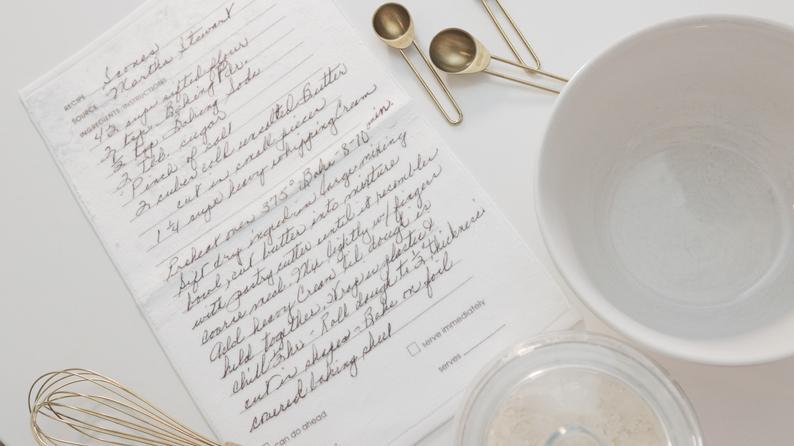 RECIPE Scones
SOURCE Martha Stewart
INGREDIENTS/INSTRUCTIONS
4 1/2 cups sifted flour
2 tsp. Baking Pdr.
1/2 tsp Baking Soda
2 Tbl. sugar
Pinch of salt
2 cubes cold unsalted butter
cut in small pieces
1 1/4 cups heavy whipping cream
Preheat oven 375° Bake 8-10 min.
Sift dry ingred in large mixing
bowl, cut butter into mixture
with pastry cutter until it resembles
coarse meal. Mix lightly w/ fingers
Add heavy cream til dough is
held together. Wrap in plastic &
chill - Roll dough to 1/2 thickness
cut in shapes - Bake on foil
covered baking sheet
serve immediately
serves
can do ahead